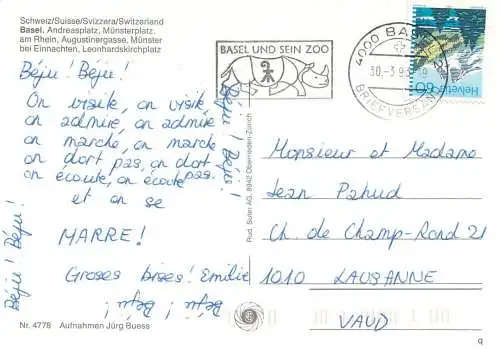 Schweiz/Suisse/Svizzera/Switzerland
Basel, Andreasplatz, Münsterplatz,
am Rhein, Augustinergasse, Münster
bei Einnachten, Leonhardskirchplatz
Béju! Béju!
On visite, on visite
on admire, on admire
on marche, on marche
on dort pas, on dort pas.
on écoute, on écoute
et on se
MARRE!
Groses bises! Emilie
Béju! Béju!
Béju! Béju!
Béju! Béju!
Nr. 4778 Aufnahmen Jürg Buess
Rud. Suter AG, 8942 Oberrieden-Zürich
BASEL UND SEIN ZOO
4000 BASEL 2
BRIEFVERSAND
Helvetia
60
Monsieur et Madame
Jean Pahud
Ch. de Champ-Rond 21
1010 LAUSANNE
VAUD
q